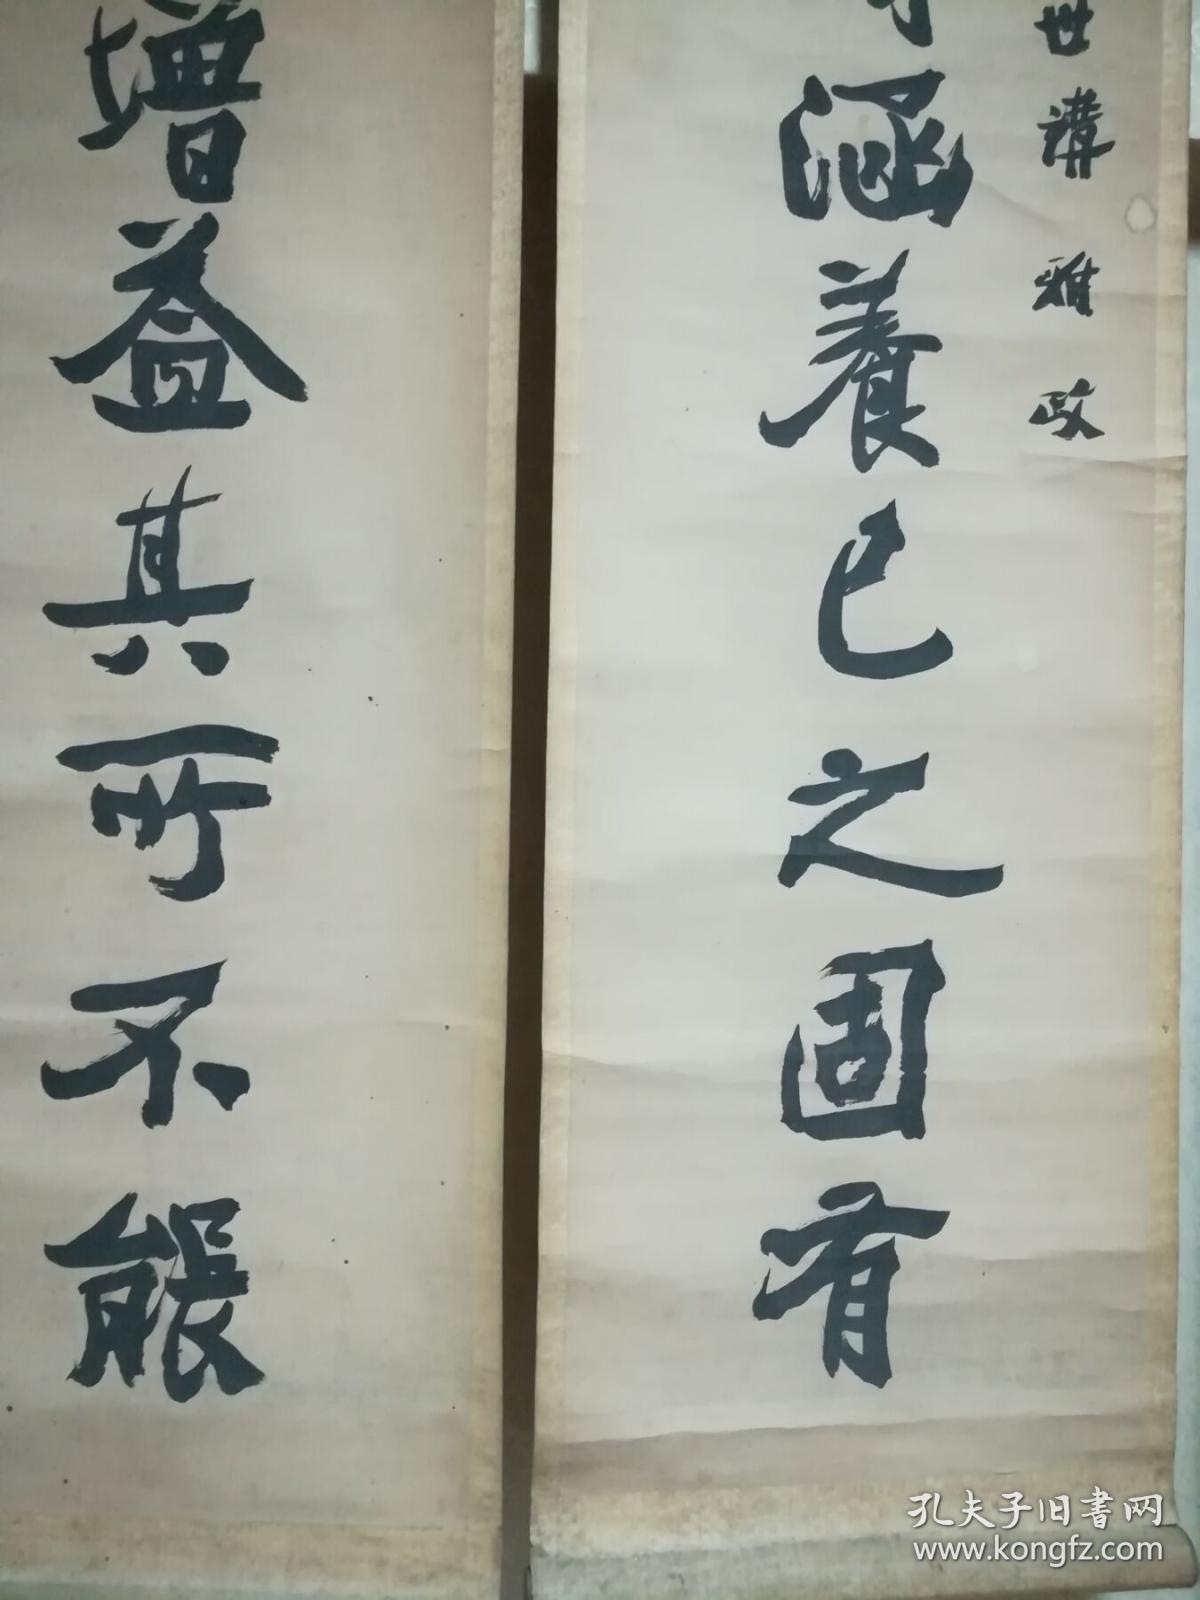 世講雅政
涵養已之固有
增益其所不能
孔夫子旧书网
www.kongfz.com